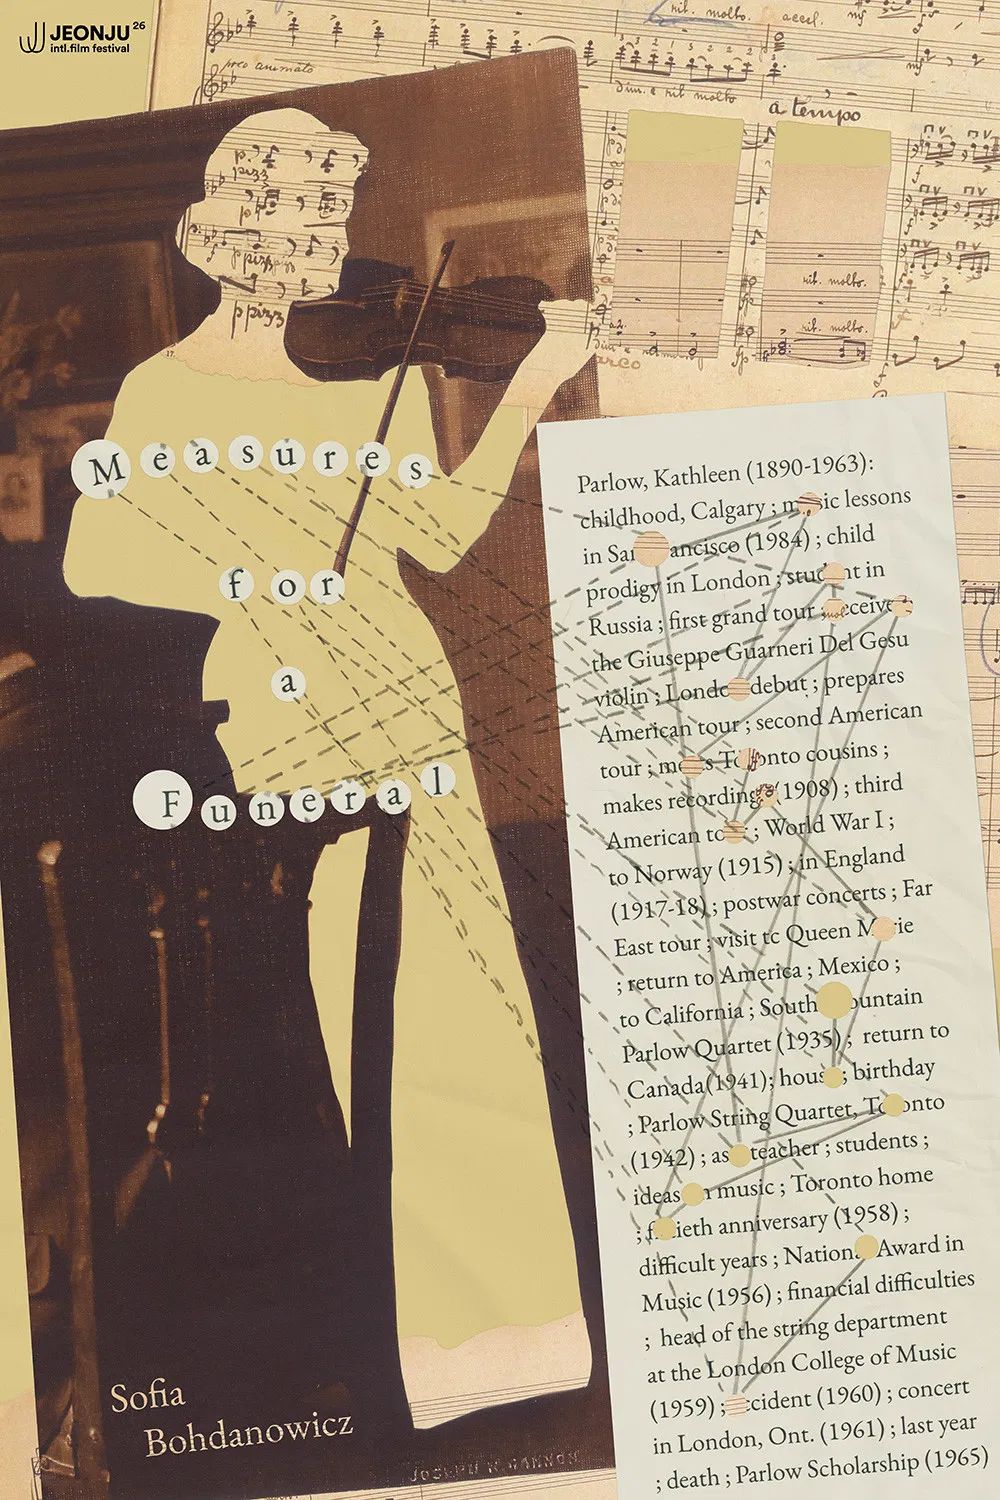 JEONJU 26
intl.film festival
rit. molto. accel. mf
poco animato
dim. e rit molto
a tempo
mf
p.
pizz
p
f
ppizz
ppizz
rit. molto.
rit. molto.
arco
Measures
for
a
Funeral
Parlow, Kathleen (1890-1963):
childhood, Calgary ; m sic lessons
in Sa ancisco (1984) ; child
prodigy in London ; stud nt in
Russia ; first grand tour ; eceive
the Giuseppe Guarneri Del Gesu
violin ; Londo debut ; prepares
American tour ; second American
tour ; m s To onto cousins ;
makes recording (1908) ; third
American to ; World War I ;
to Norway (1915) ; in England
(1917-18) ; postwar concerts ; Far
East tour ; visit to Queen M rie
; return to America ; Mexico ;
to California ; South ountain
Parlow Quartet (1935) ; return to
Canada(1941); hous ; birthday
; Parlow String Quartet, To onto
(1942) ; as teacher ; students ;
ideas n music ; Toronto home
; f ieth anniversary (1958) ;
difficult years ; Nationa Award in
Music (1956) ; financial difficulties
; head of the string department
at the London College of Music
(1959) ; ccident (1960) ; concert
in London, Ont. (1961) ; last year
; death ; Parlow Scholarship (1965)
Sofia
Bohdanowicz
JOSEPH N. GANNON